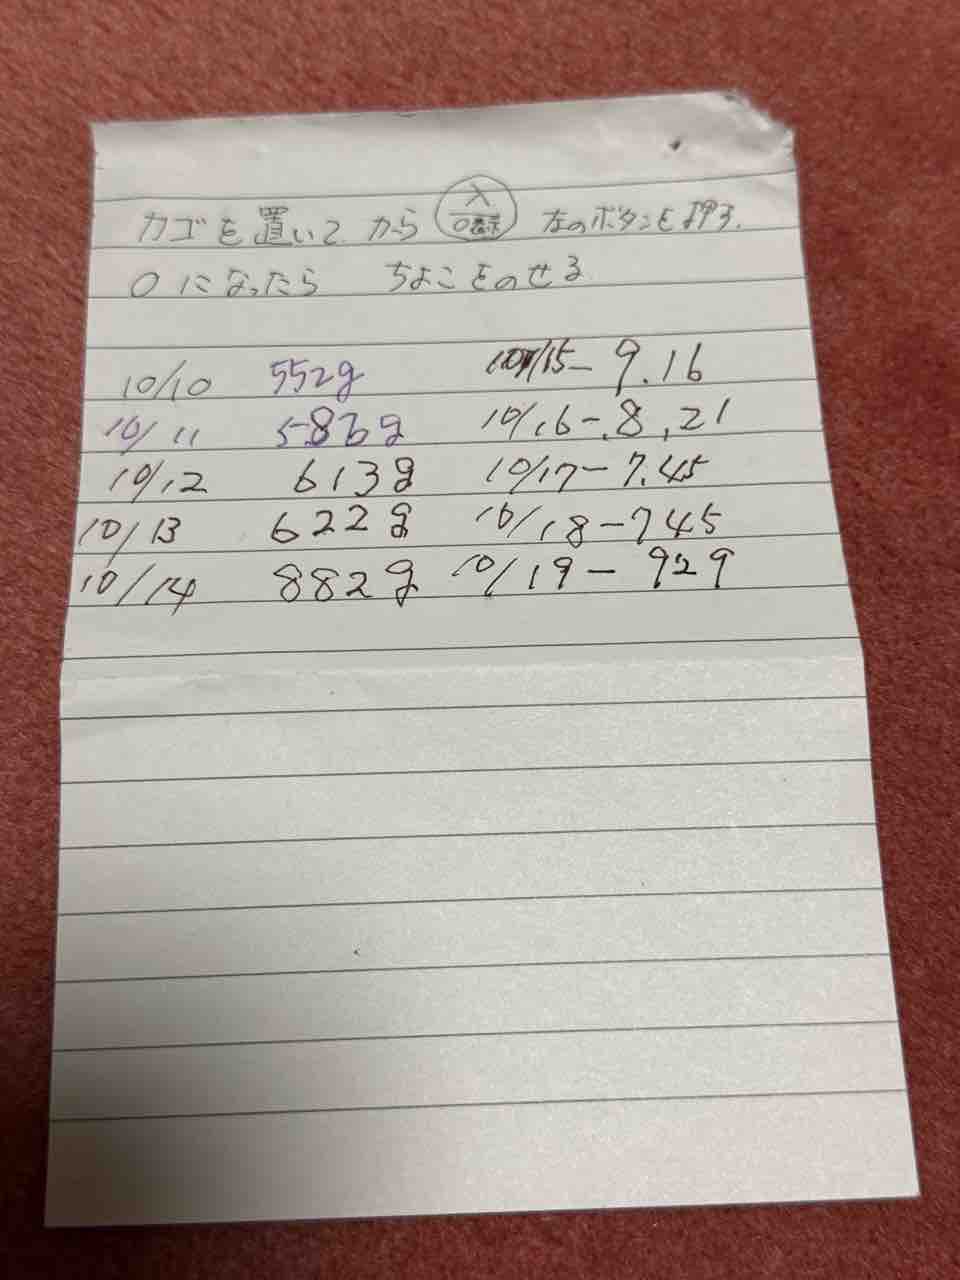 カゴを置いてから 入/0表示 左のボタンを押す.
0になったら ちよこをのせる
10/10 552g 10/15- 9.16
10/11 586g 10/16-.8,21
10/12 613g 10/17-7.45
10/13 622g 10/18-745
10/14 882g 10/19- 929